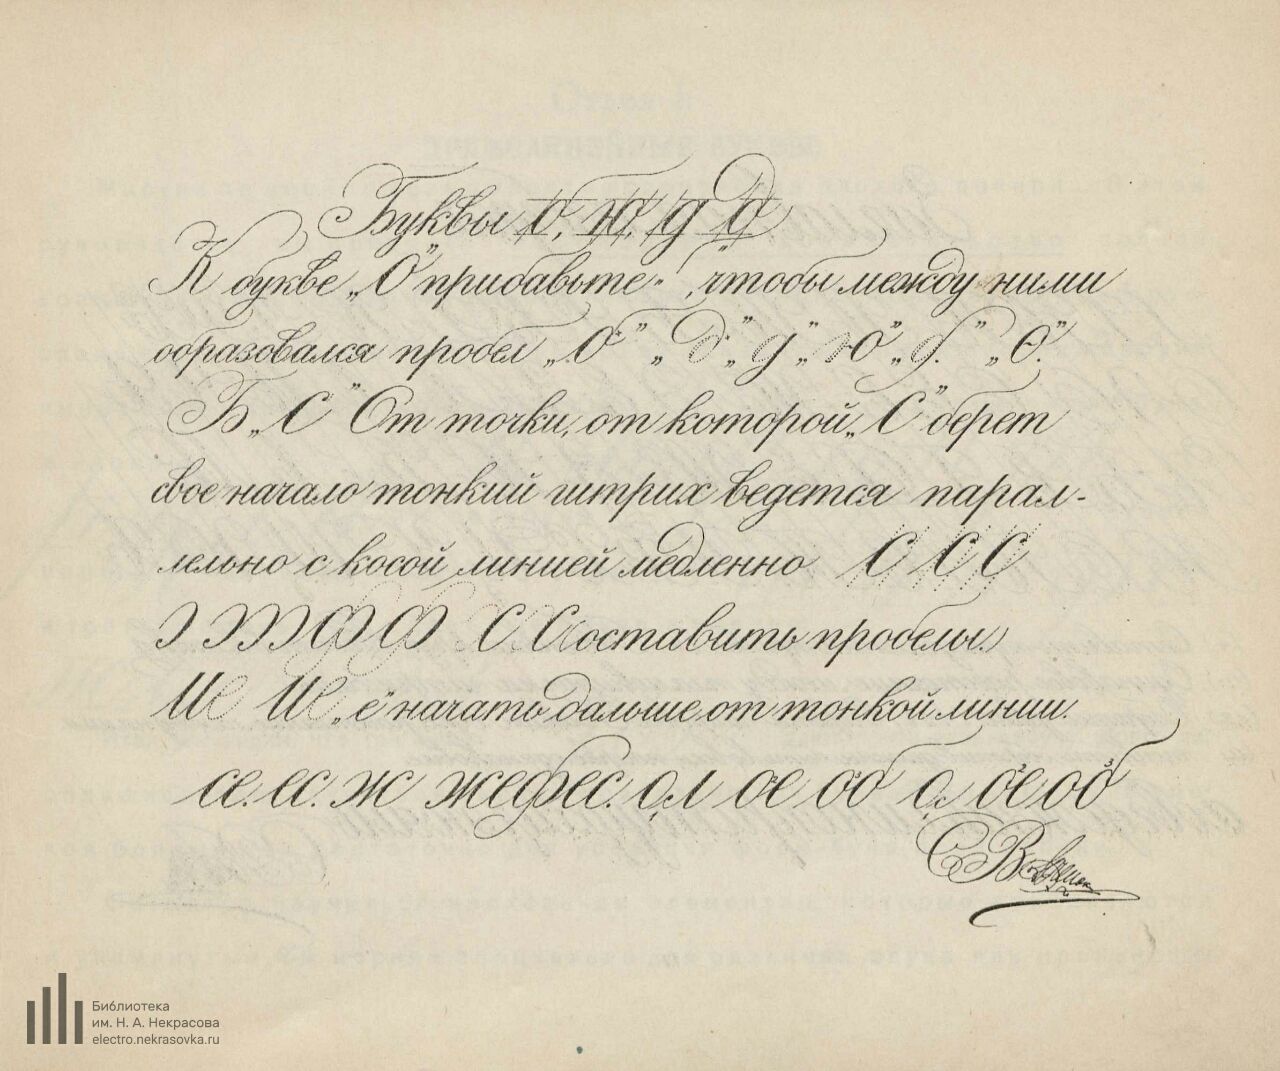 Буквы о, ю, д д
К букве „О" прибавьте „ι", чтобы между ними
образовался пробел „О" „д" „д" „Ю" „б." „Ѳ".
Б „С" От точки, от которой „С" берет
свое начало тонкий штрих ведется парал-
лельно с косой линией медленно С С С
Э Э Ж Ф Ф С. Составить пробелы.)
Ше Ше „е" начать дальше от тонкой линии.
се. ес. ж жефес. о,л ое об о,л ое об
Библиотека
им. Н. А. Некрасова
electro.nekrasovka.ru